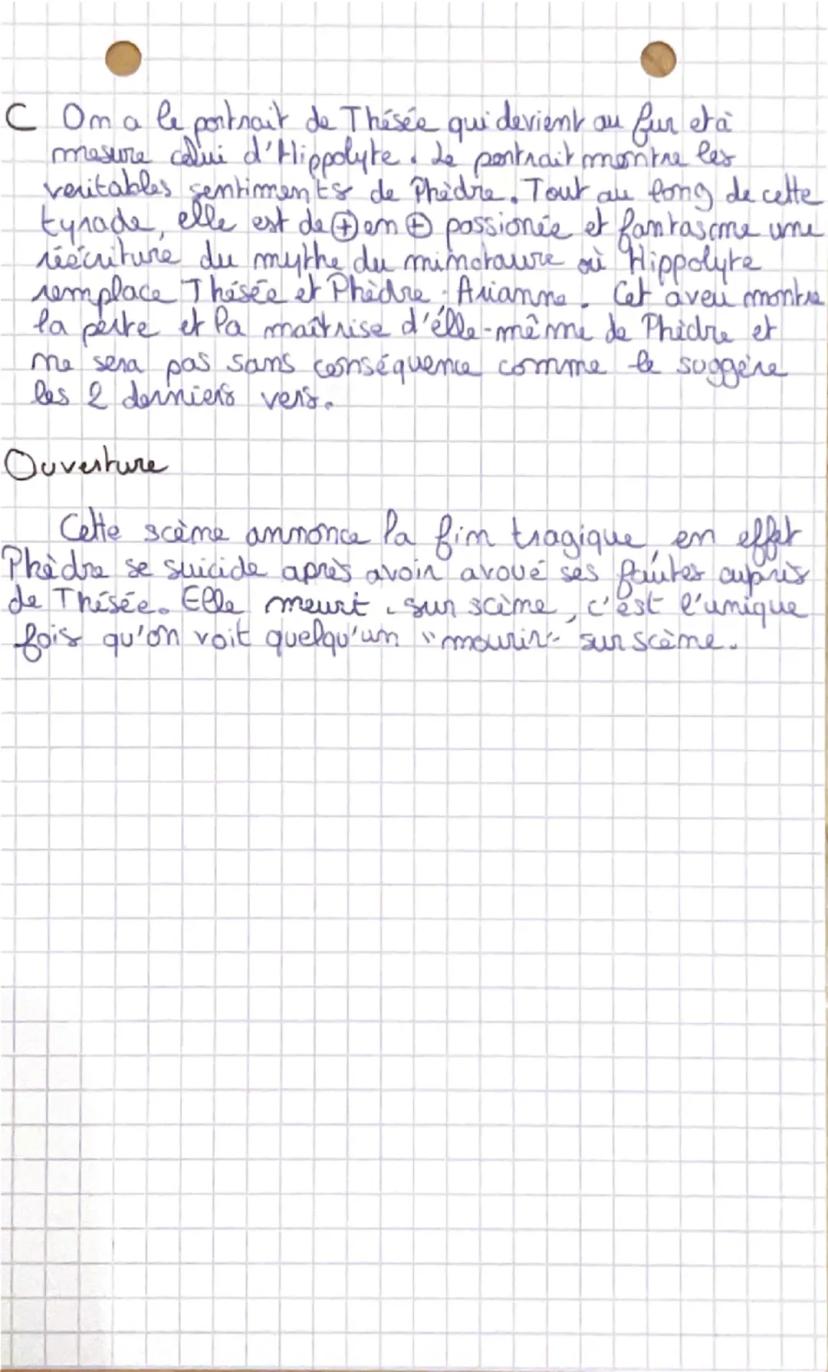 C On a le portrait de Thésée qui devient au fur et à
mesure celui d'Hippolyte. Le portrait montre les
veritables sentiments de Phèdre. Tout au long de cette
tyrade, elle est de ⊕ en ⊕ passionée et fantasme une
réécriture du mythe du minotaure où Hippolyte
remplace Thésée et Phèdre, Arianne. Cet aveu montre
la perte et la maîtrise d'elle-même de Phèdre et
ne sera pas sans conséquence comme le suggère
les 2 derniers vers.
Ouverture
Cette scène annonce la fin tragique, en effet
Phèdre se suicide après avoir avoué ses fautes auprès
de Thésée. Elle meurt sur scène, c'est l'unique
fois qu'on voit quelqu'un "mourir" sur scène.